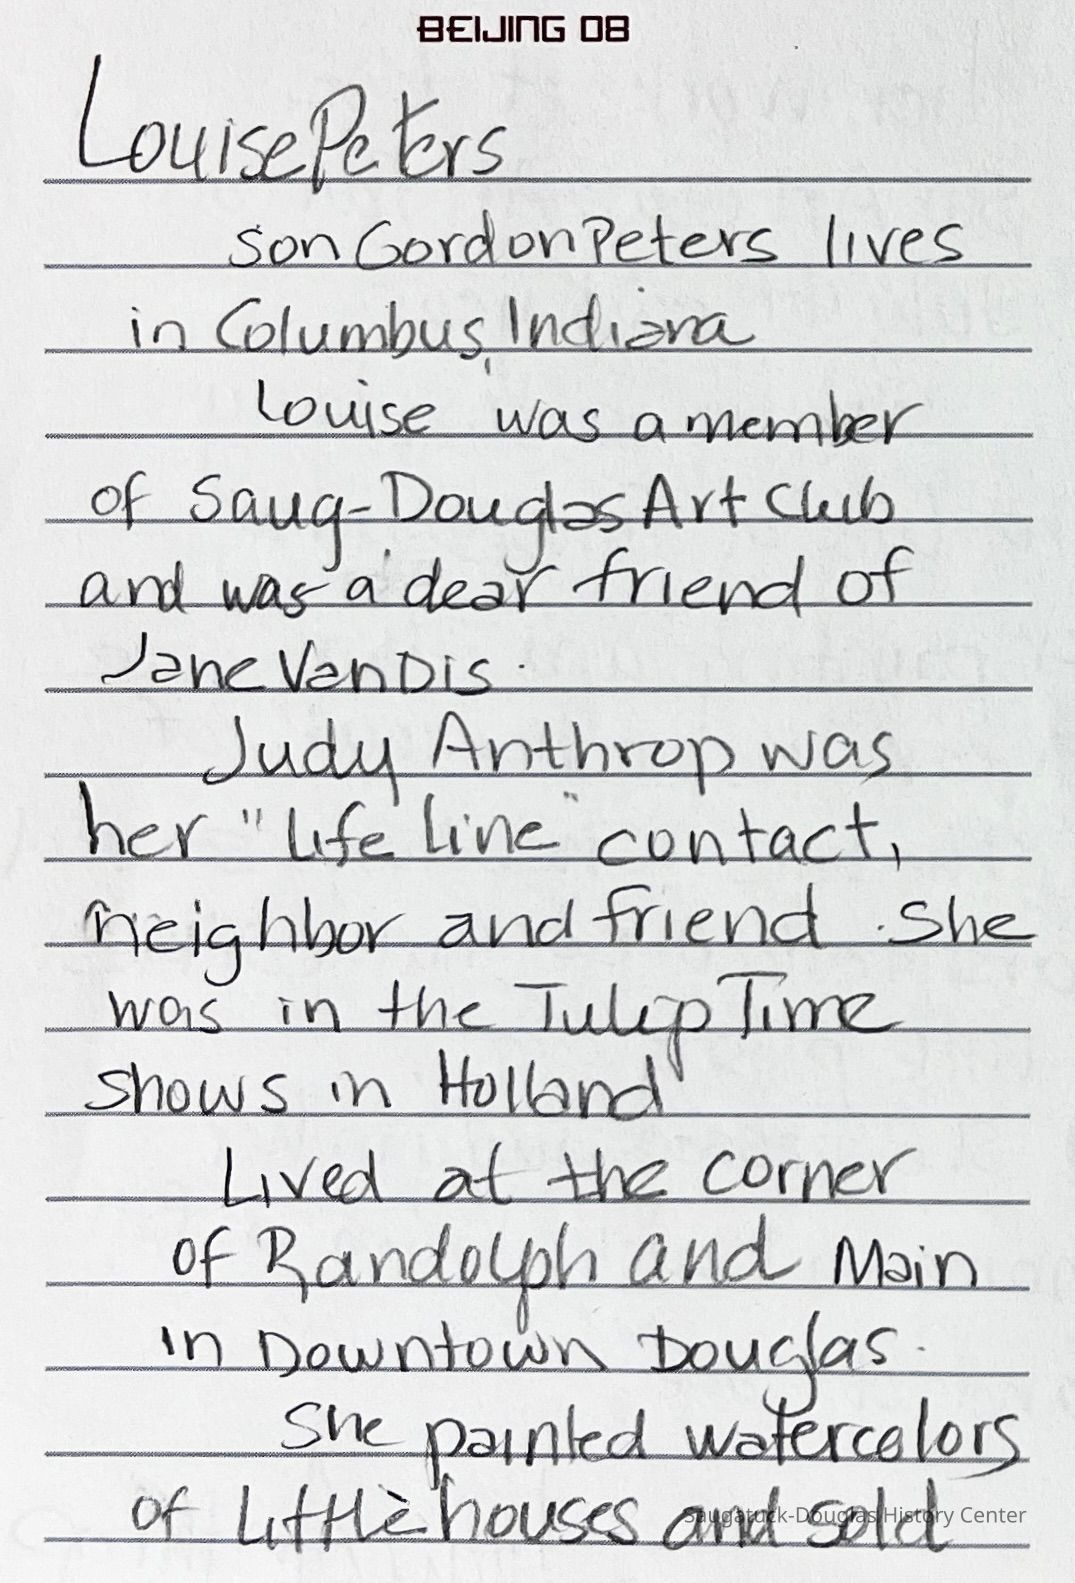 BEIJING 08
Louise Peters
son Gordon Peters lives
in Columbus, Indiana
Louise was a member
of Saug-Douglas Art Club
and was a dear friend of
Jane Van Dis.
Judy Anthrop was
her "life line" contact,
neighbor and friend. She
was in the Tulip Time
shows in Holland
Lived at the corner
of Randolph and Main
in Downtown Douglas.
She painted watercolors
of little houses and sold
Saugatuck-Douglas History Center